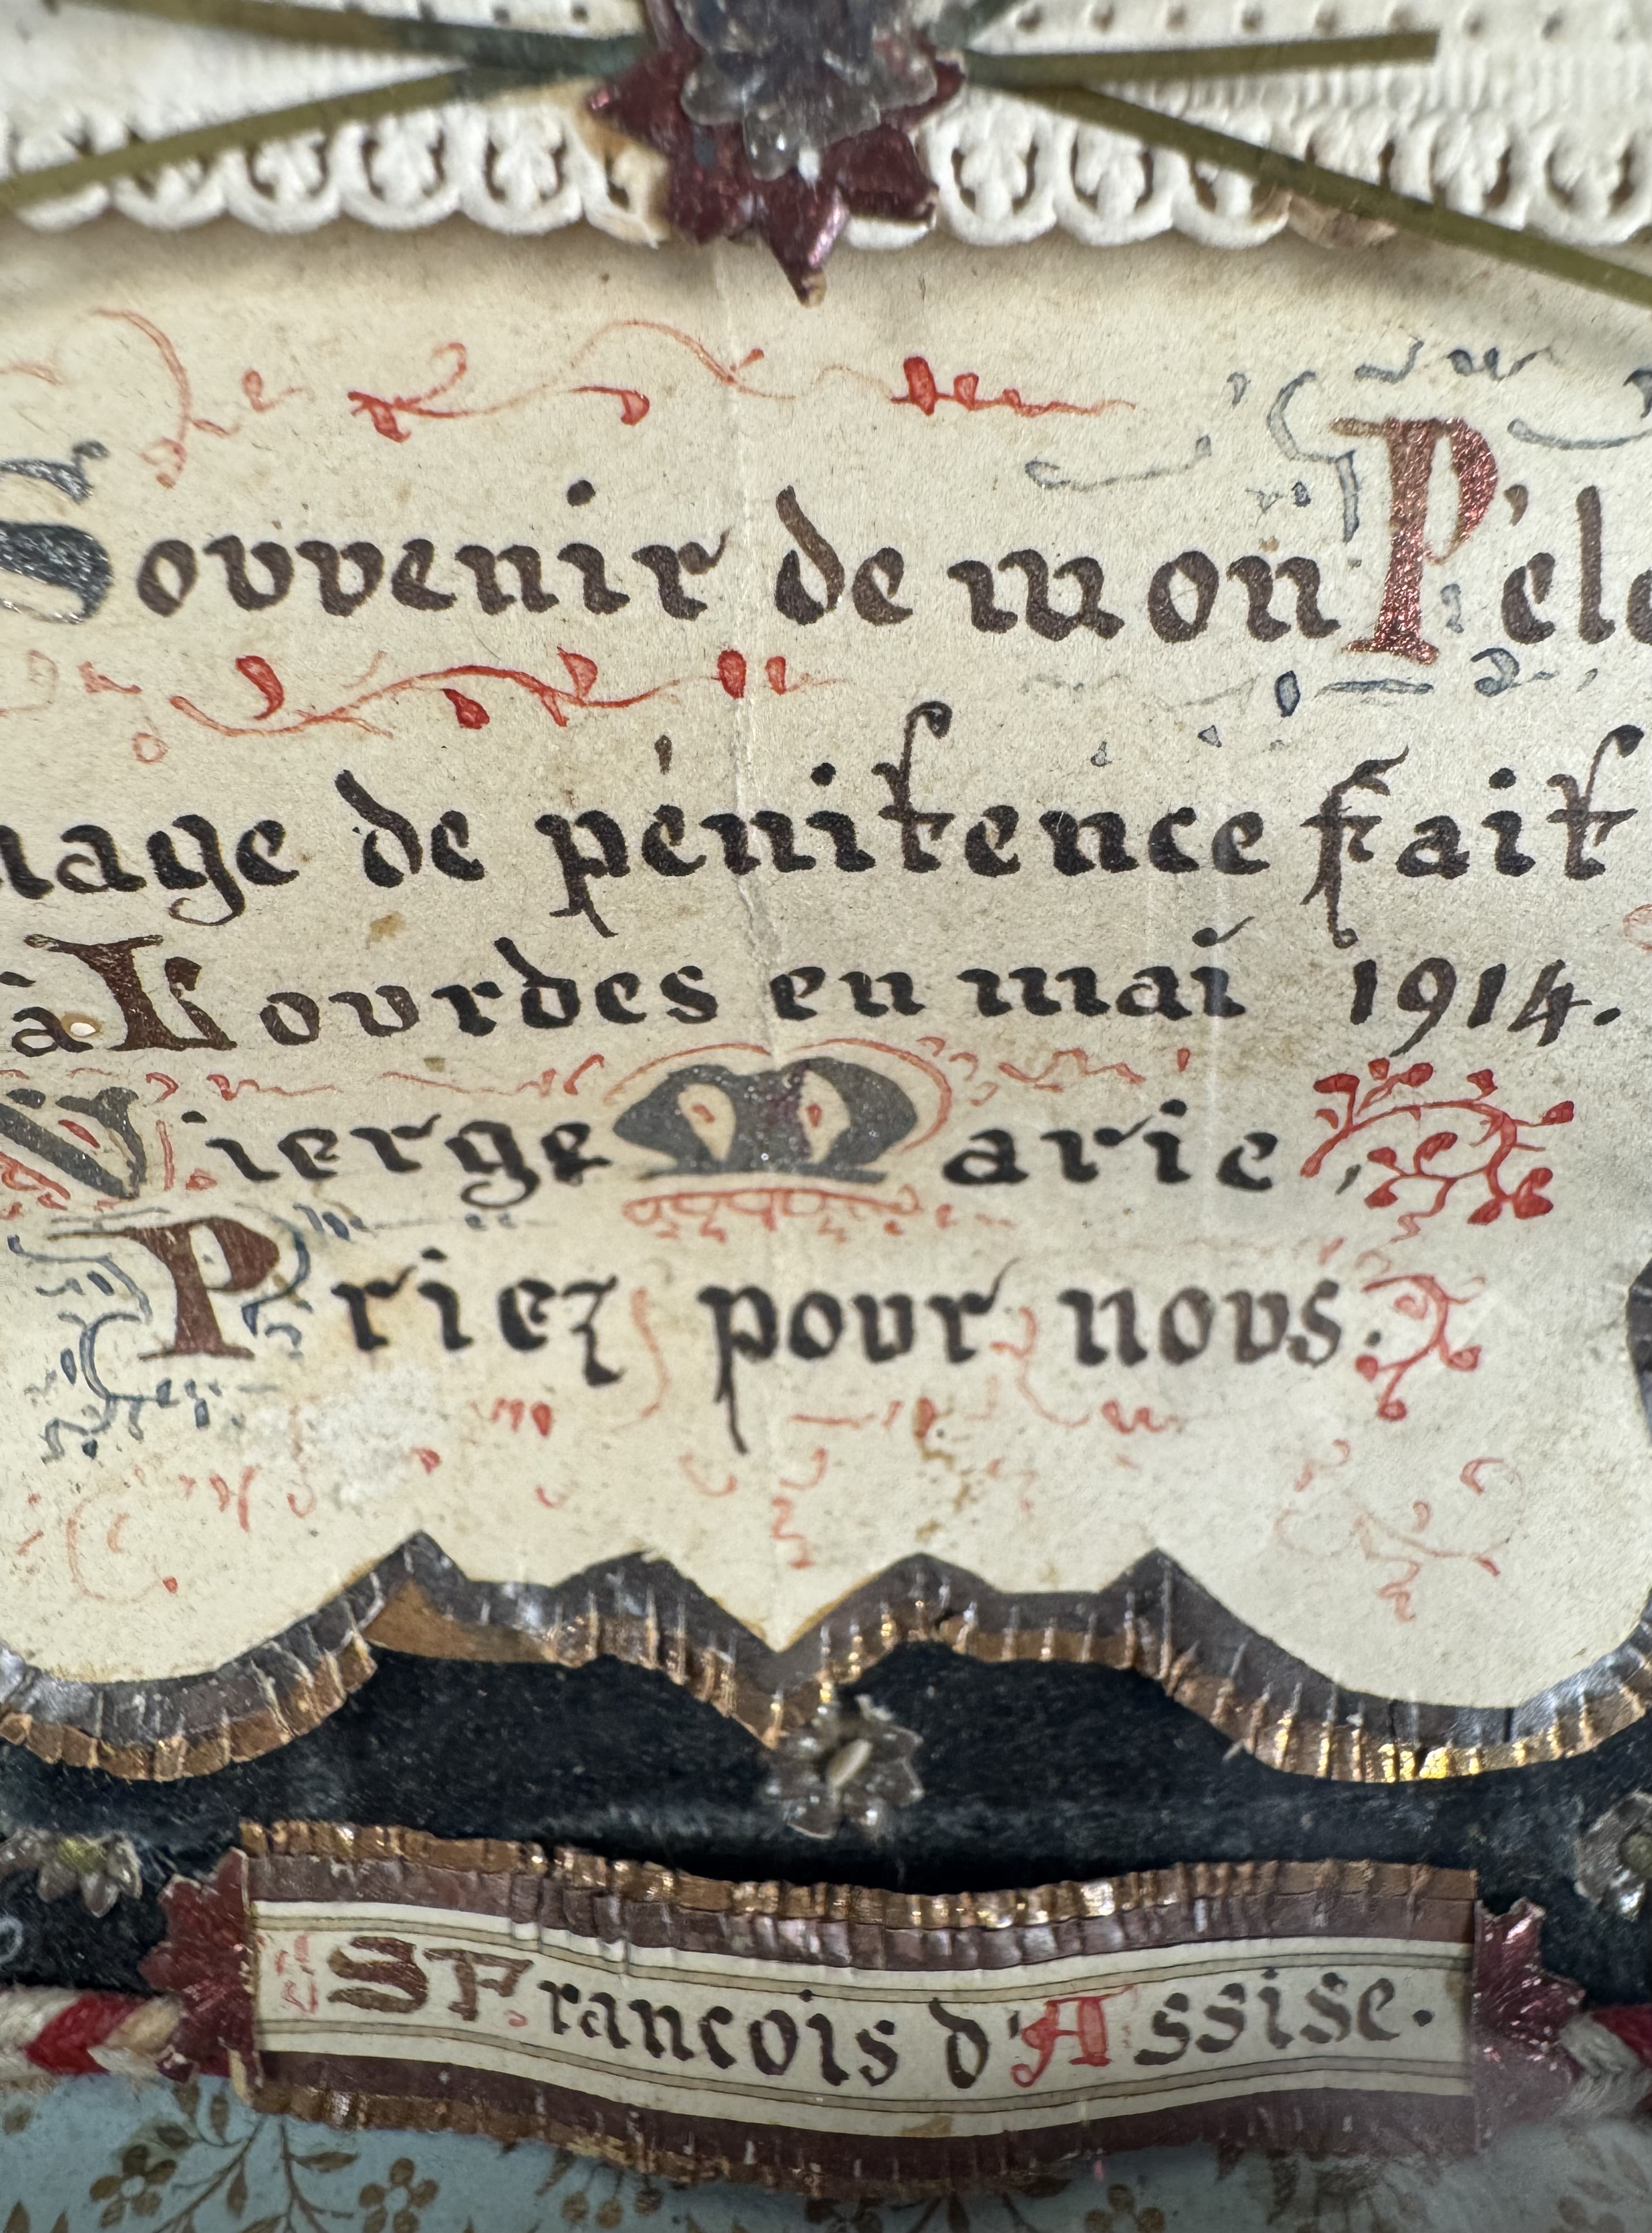 Souvenir de mon Péle
nage de pénitence fait
à Lourdes en mai 1914.
Vierge Marie,
Priez pour nous.
S François d'Assise.